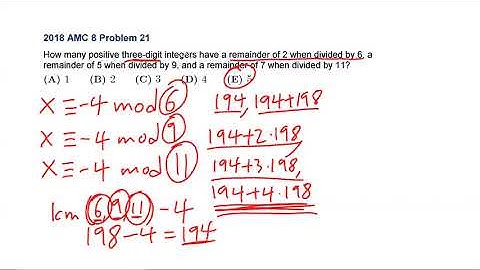 2018 AMC 8 Problem 21
How many positive three-digit integers have a remainder of 2 when divided by 6, a
remainder of 5 when divided by 9, and a remainder of 7 when divided by 11?
(A) 1 (B) 2 (C) 3 (D) 4 (E) 5
X ≡ -4 mod 6
X ≡ -4 mod 9
X ≡ -4 mod 11
lcm (6, 9, 11) - 4
198 - 4 = 194
194, 194+198
194+2·198
194+3·198,
194+4·198